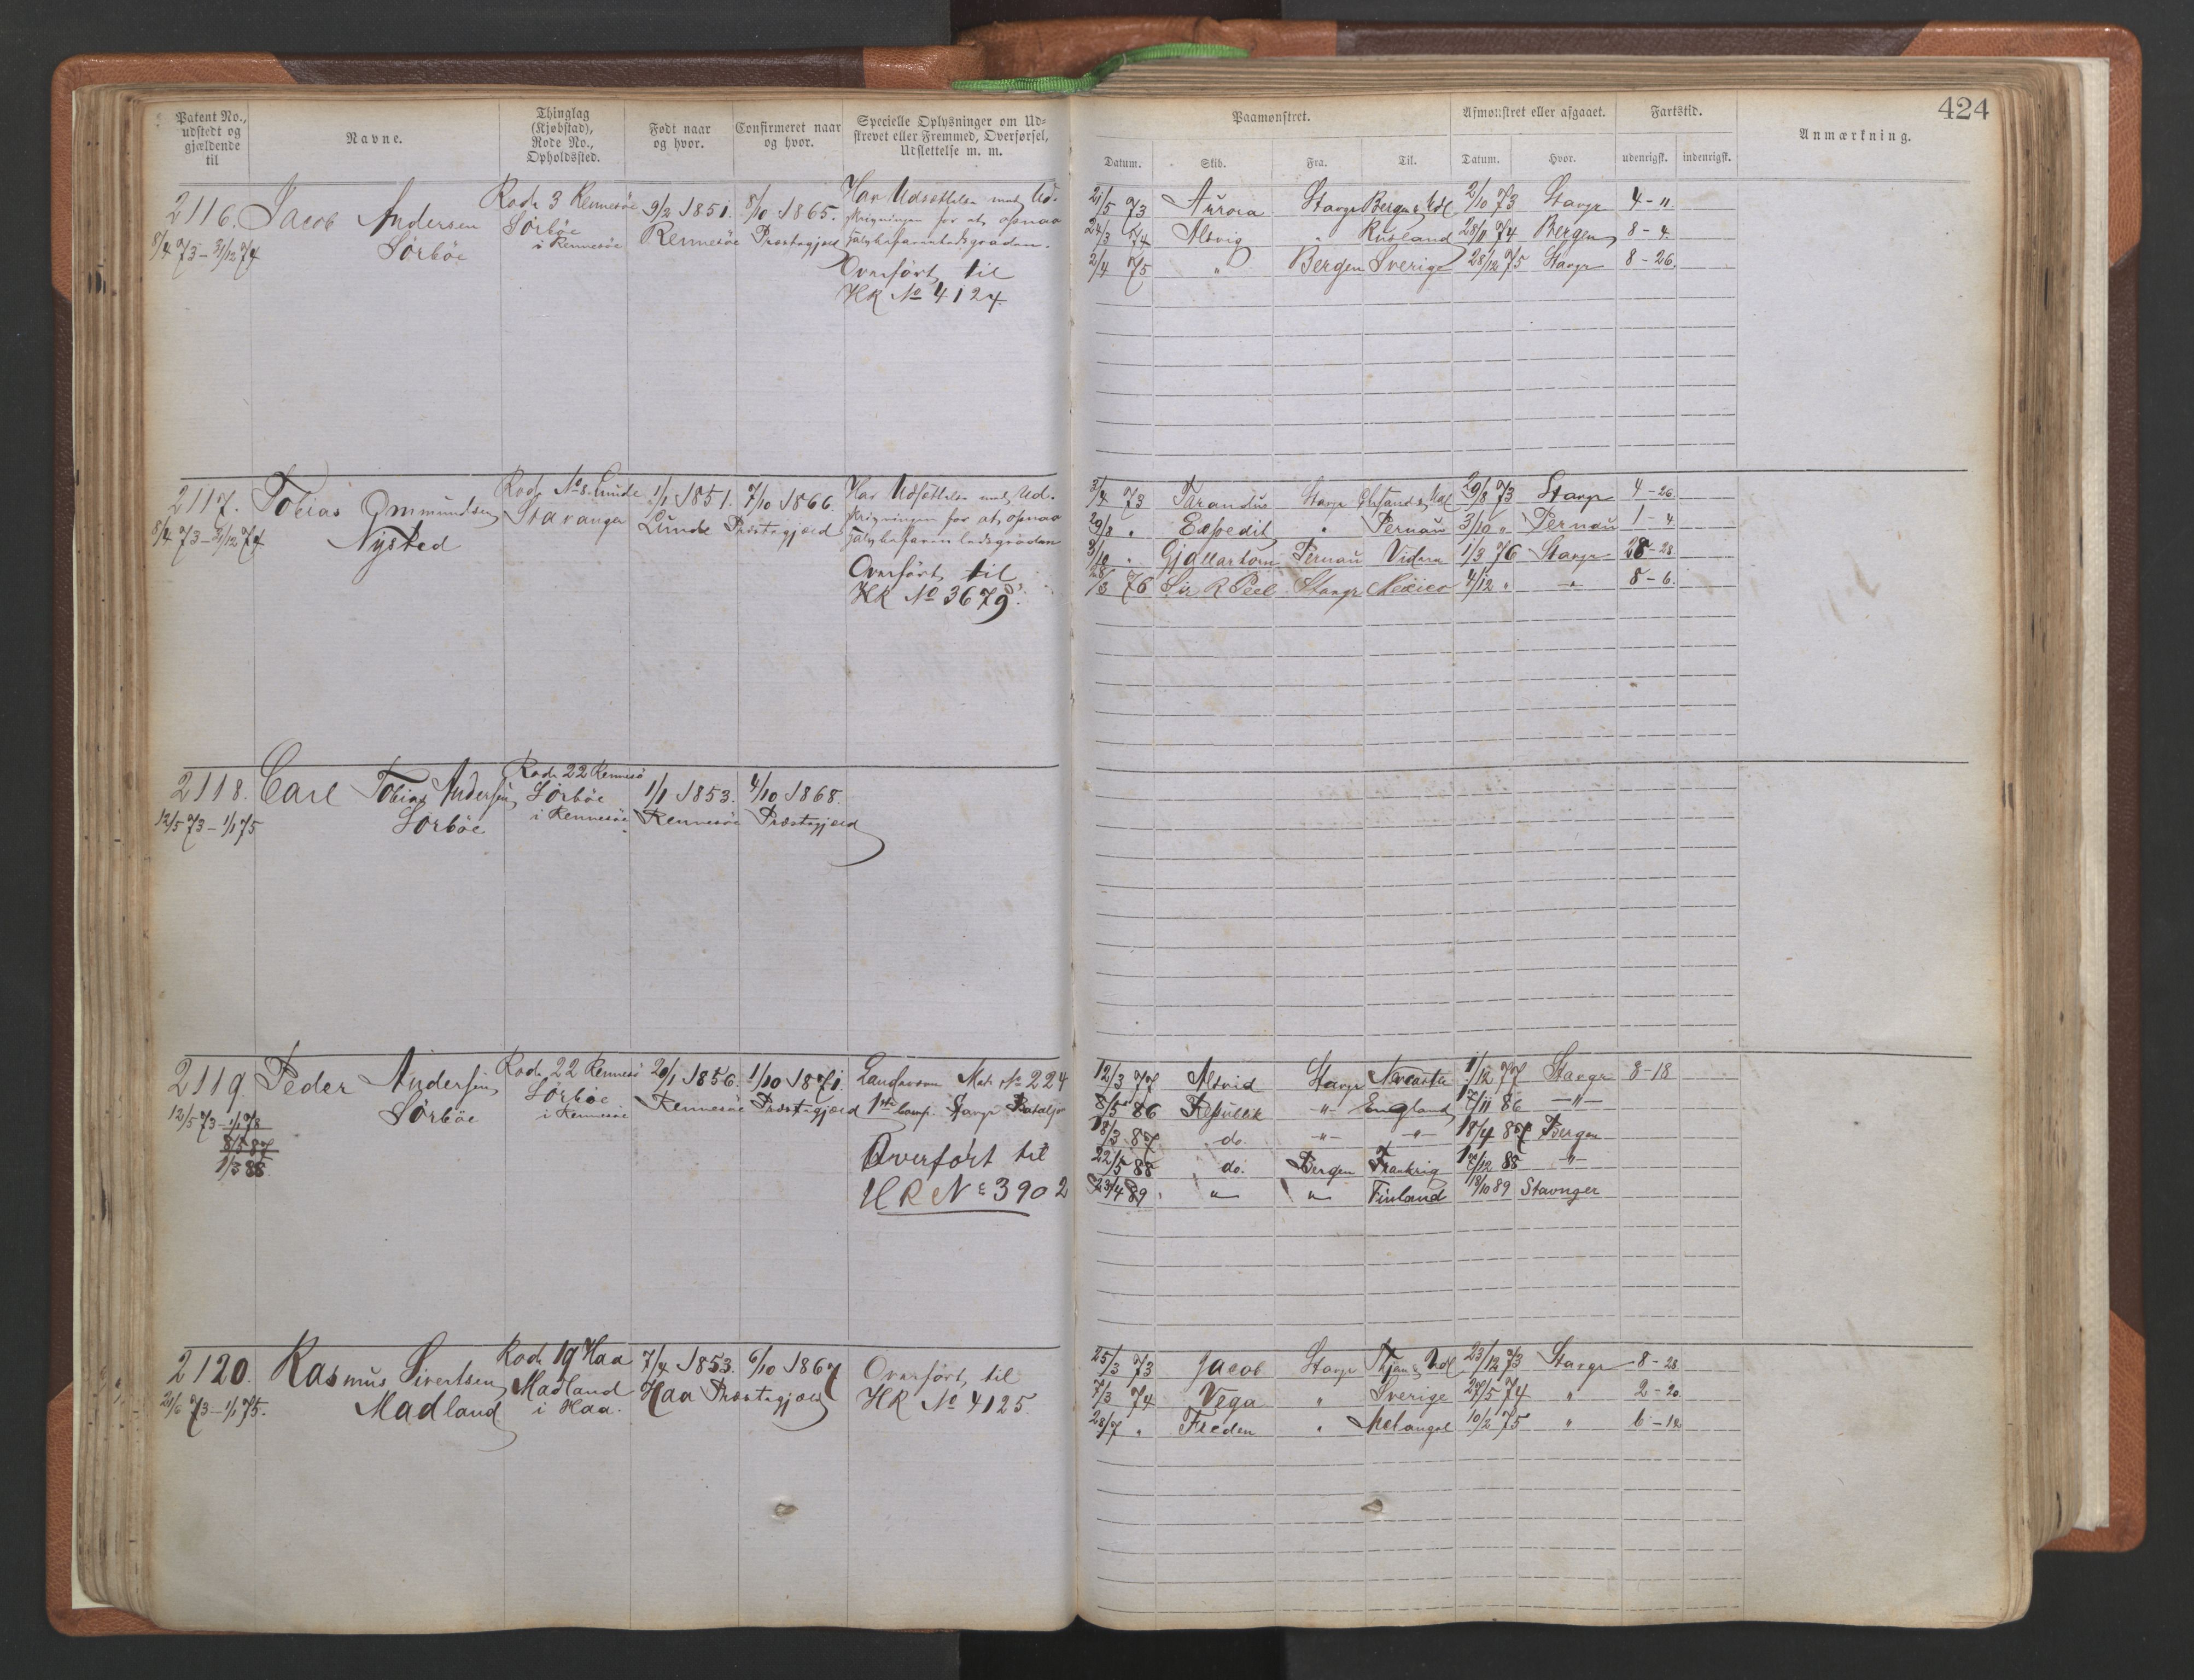 424
Patent No., udstedt og gjældende til
Navne.
Thinglag (Kjøbstad), Rode No., Opholdssted.
Født naar og hvor.
Confirmeret naar og hvor.
Specielle Oplysninger om Udstrevet eller Fremmed, Overførsel, Udslettelse m. m.
Paamønstret.
Afmønstret eller afgaaet.
Fartstid.
Anmærkning.
Datum. Skib. Fra. Til. Datum. Hvor. udenrigsk. indenrigsk.
2116. Jacob Andersen Sörböe
8/4 73 - 31/12 74
Rode 3 Rennesöe
Sörböe
i Rennesöe
9/2 1851.
Rennesöe
8/10 1865.
Præstegjæld
Har Udsættelse med Ud-
skrivningen for at opnaa
halvbefarenhedsgraden.
Overført til
HR No 4124
21/5 73 Aurora Stavgr Bergen & Udl 2/10 73 Stavgr 4 - 11
24/3 74 Alvig " Rusland 28/11 74 Bergen 8 - 4
2/4 75 " Bergen Sverige 28/12 75 Stavgr 8 - 26
2117. Tobias Ommundsen
Nysted
8/4 73 - 31/12 74
Rode No 8. Lunde
Stavanger
1/1 1851.
Lunde
7/10 1866.
Præstegjæld
Har Udsættelse med Ud-
skrivningen for at opnaa
halvbefarenhedsgraden
Overført til
HR No 3679
3/4 73 Stavgr 29/8 73 Stavgr 4 - 26
29/8 " Expedit " Pernau 3/10 " Pernau 1 - 4
3/10 " Gjallarhorn Pernau 1/3 76 Stavgr 28 - 28
28/3 76 Sir R Peel Stavgr Mexico 4/12 " " 8 - 6
2118. Carl Tobias Andersen
Sörböe
12/5 73 - 1/1 75
Rode 22 Rennesö
Sörböe
i Rennesöe
1/1 1853.
Rennesöe
4/10 1868.
Præstegjæld
2119 Peder Andersen
Sörböe
12/5 73 - 1/1 78
8/5 87
1/3 88
Rode 22 Rennesö
Sörböe
i Rennesöe
20/1 1856.
Rennesöe
1/10 1871.
Præstegjæld
Landværn Mat. No 224
1ste Comp. Stavgr Bataljon
Overført til
HR No 3902
12/3 77 Alvid Stavgr Newcastle 1/12 77 Stavgr 8 - 18
8/5 86 Republik " England 7/11 86 "
18/3 87 do. " " 18/4 87 Bergen
22/5 88 do. Bergen Frankrig /12 88 "
23/4 89 " " Finland 18/10 89 Stavanger
2120. Rasmus Sivertsen
Madland
20/6 73 - 1/1 75.
Rode 19 Haa
Madland
i Haa.
7/4 1853.
Haa
6/10 1867
Præstegjæld
Overført til
HR No 4125
25/3 73 Jacob Stavgr 23/12 73 Stavgr 8 - 28
7/3 74 Vega " Sverige 27/5 74 " 2 - 20
28/7 " Freden " 10/2 75 " 6 - 12